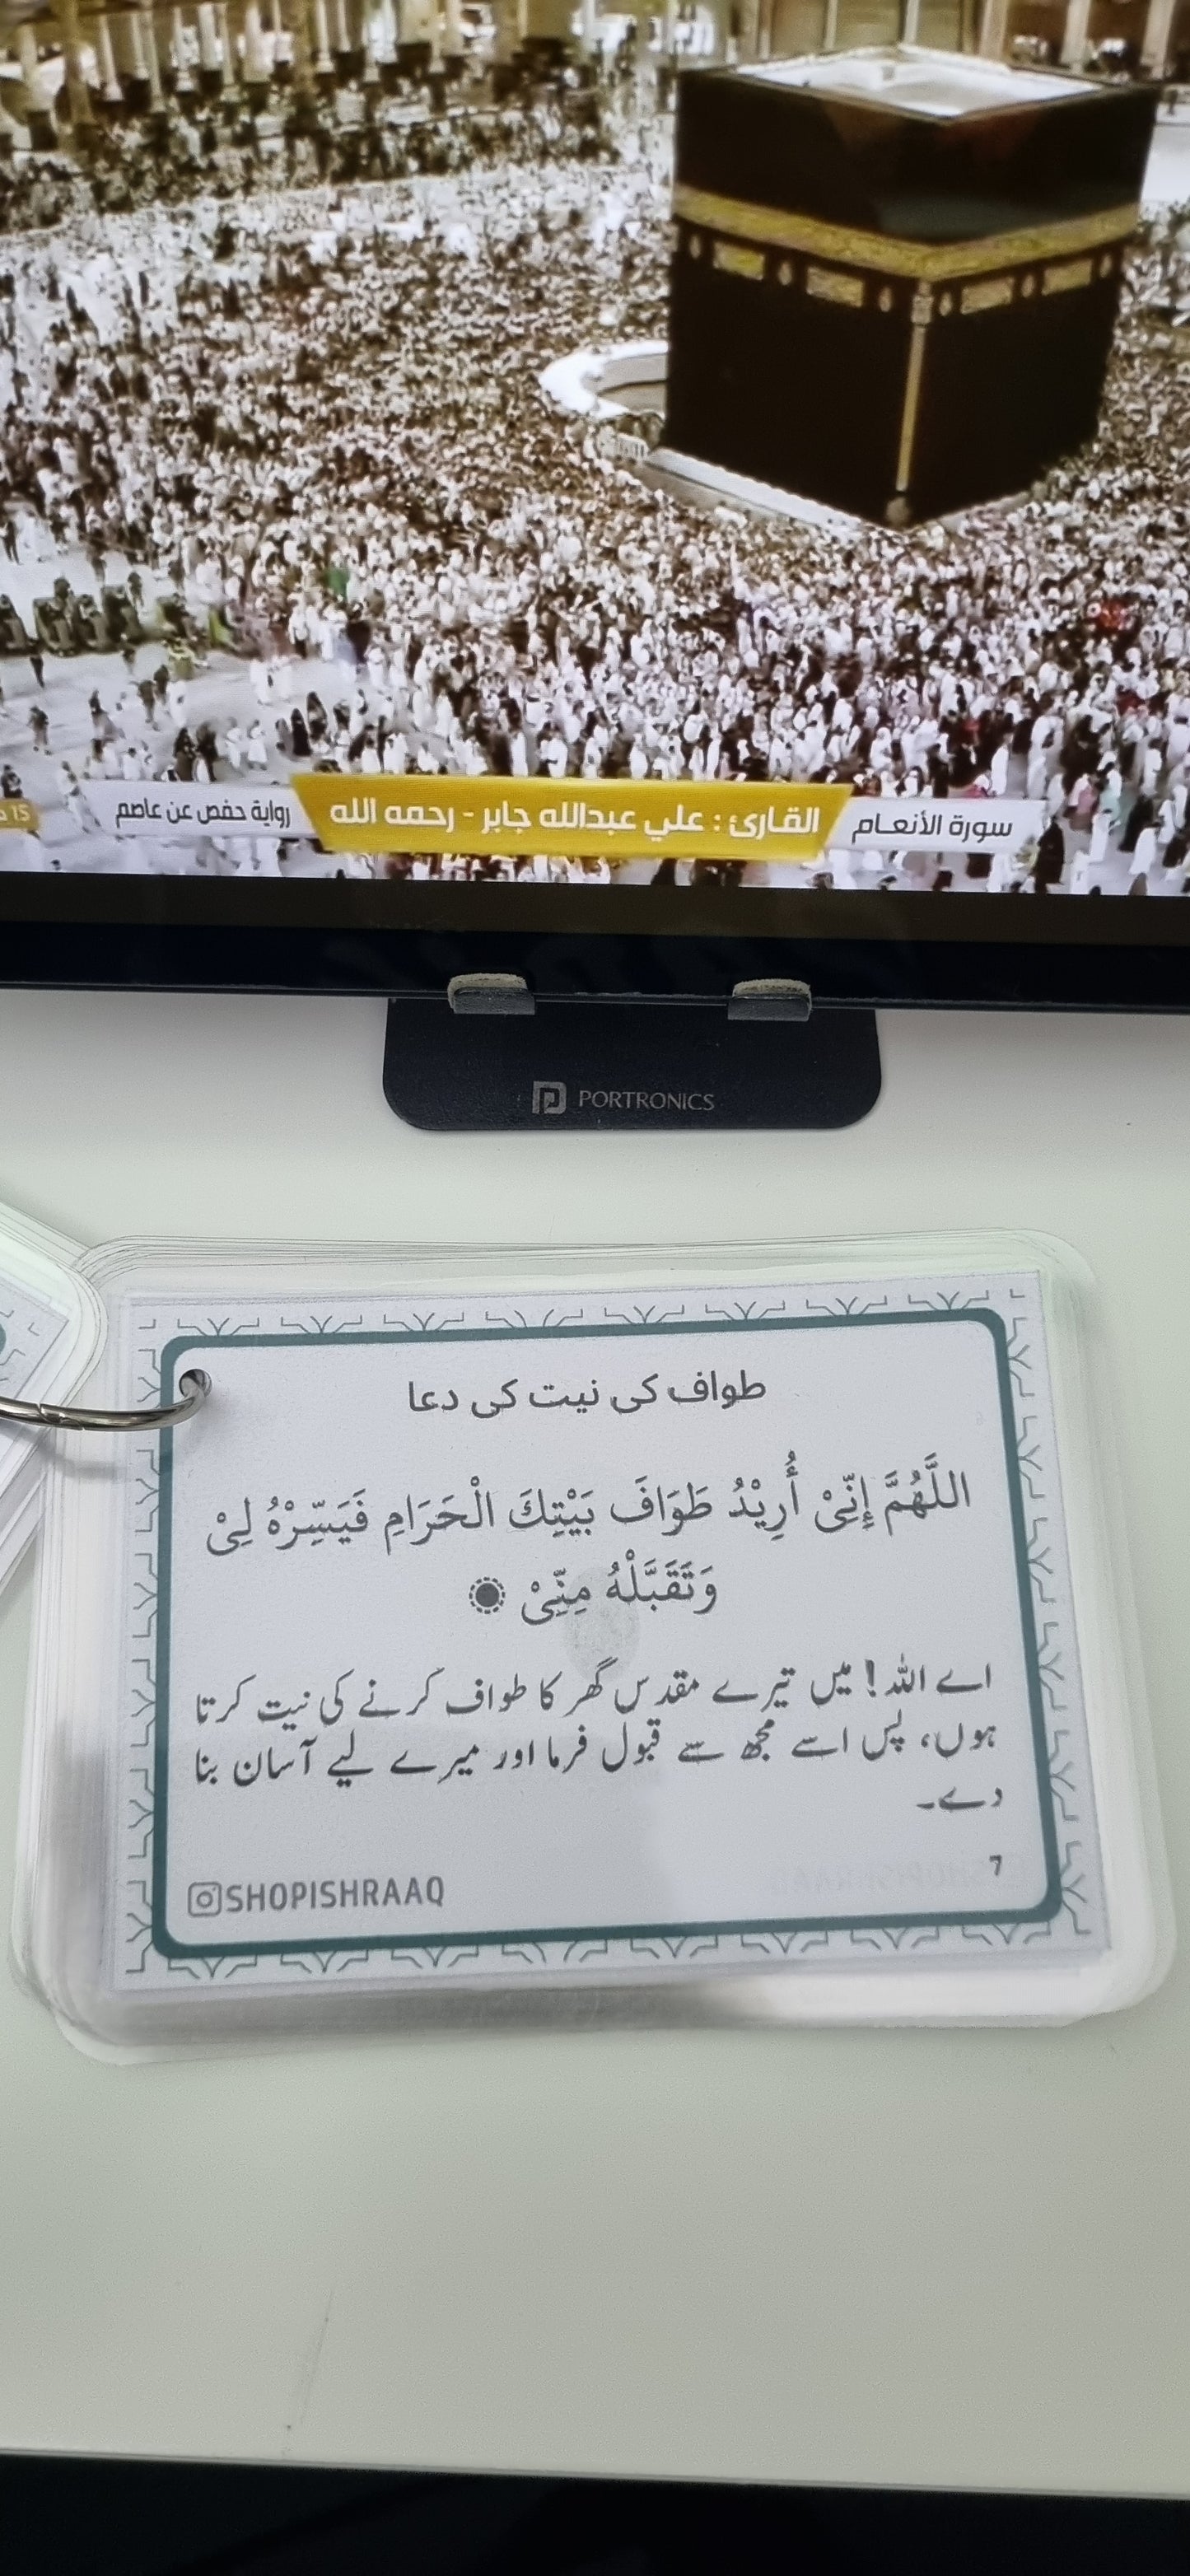 سورة الأنعام
القارئ : علي عبدالله جابر - رحمه الله
رواية حفص عن عاصم
15
PORTRONICS
طواف کی نیت کی دعا
اللَّهُمَّ إِنِّىْ أُرِيْدُ طَوَافَ بَيْتِكَ الْحَرَامِ فَيَسِّرْهُ لِىْ
وَتَقَبَّلْهُ مِنِّىْ
اے اللہ! میں تیرے مقدس گھر کا طواف کرنے کی نیت کرتا
ہوں، پس اسے مجھ سے قبول فرما اور میرے لیے آسان بنا
دے۔
7
SHOPISHRAAQ